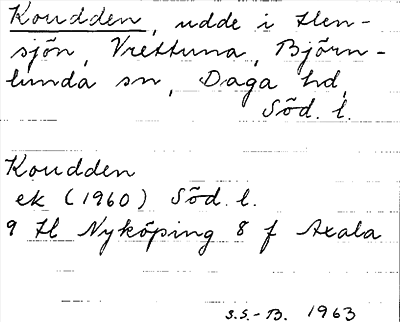 Koudden, udde i Hen-
sjön, Vrettuna, Björn-
lunda sn, Daga hd,
Söd. l.
Koudden
ek (1960) Söd. l.
9 H Nyköping 8 f Axala
S.S.-B. 1963